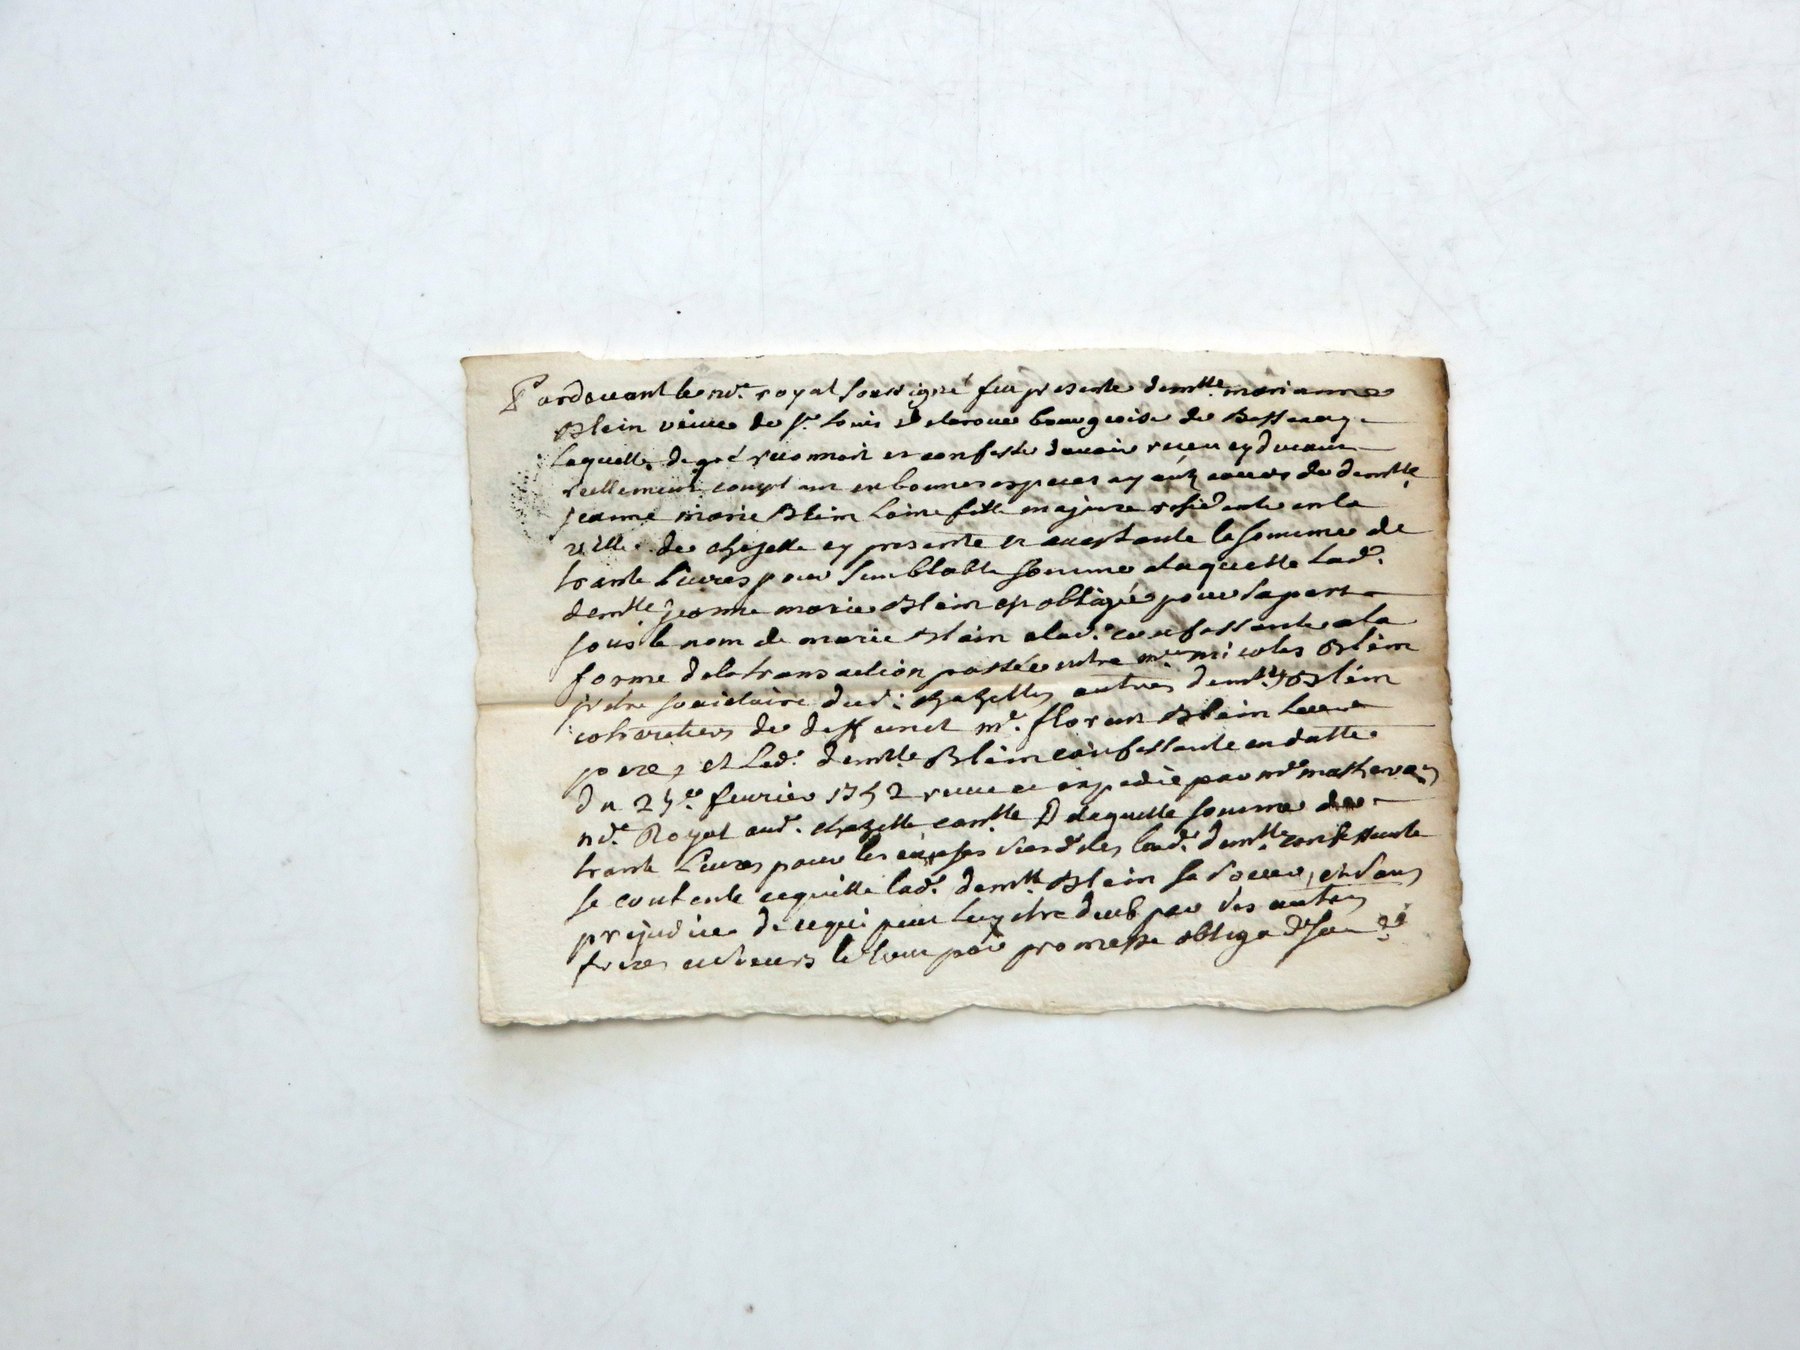 Pardevant le nre. royal soussigné fut presente demlle. marianne
Blein veuve de sr. Louis delaroue bourgeoise de Bessenay
Laquelle de gré reconnoit et confesse davoir receu cy devant
reellement comptant en bonnes especes ayant cours de demlle.
jeanne marie Blein Laine fille majeure residente en la
ville de chazelle cy presente et acceptante la somme de
trante Livres pour semblable somme a laquelle lad.
demlle. jeanne marie Blein est obligée pour sa part
sous le nom de marie Blein a lad. confessante a la
forme de la transaction passée entre mre. nicolas Blein
pretre societaire dud. chazelles autres demlles. Blein
cohoretiers de deffunct mr. floran Blein leur
pere, et Lad. demlle. Blein confessante en datte
du fevrier receue et expedié par me
nre. Royal aud. chazelle, de laquelle somme de
trante Livres pour les causes susdites lad. demlle. confessante
se contente et quitte lad. demlle. Blein sa soeur, et sans
prejudice de ce qui peut luy etre deub par ses autres
freres et soeurs le tout par promesse obliga